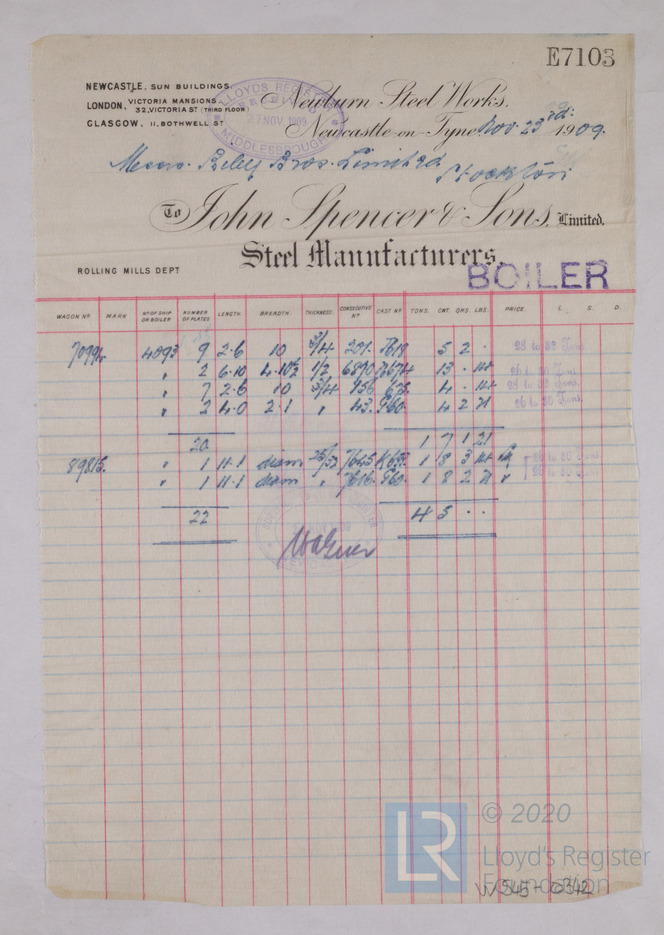 E7103
NEWCASTLE, SUN BUILDINGS.
LONDON, VICTORIA MANSIONS, 32, VICTORIA ST (THIRD FLOOR)
GLASGOW, 11, BOTHWELL ST
LLOYD'S REGISTER
27 NOV. 1909
MIDDLESBROUGH
Newburn Steel Works.
Newcastle-on-Tyne Nov. 23rd. 1909.
Messrs. Bros. Limited
Stockton
To John Spencer & Sons, Limited.
Steel Manufacturers.
ROLLING MILLS DEPT
BOILER
WAGON No MARK No OF SHIP OR BOILER NUMBER OF PLATES LENGTH. BREADTH. THICKNESS. CONSECUTIVE No CAST No TONS. CWT. QRS. LBS. PRICE. £. S. D.
4093 9 2.6 10 3/4 201. 5 2 . 28 to 32 Tons.
" 2 6.10 4.10½ 1/2 6890 13 . 14 26 to 30 Tons.
" 7 2.6 10 3/4 956 4 . 14 28 to 32 Tons.
" 2 4.0 2.1 " 43. 960. 4 2 21 26 to 30 Tons.
20 1 7 1 21
89815. " 1 11.1 diam 25/32 7645 1 8 3 26 to 30 Tons
" 1 11.1 diam " 7616. 960. 1 8 2 21 " 26 to 30 Tons.
22 4 5 . .
LR
© 2020
Lloyd's Register
Foundation
W545-0342